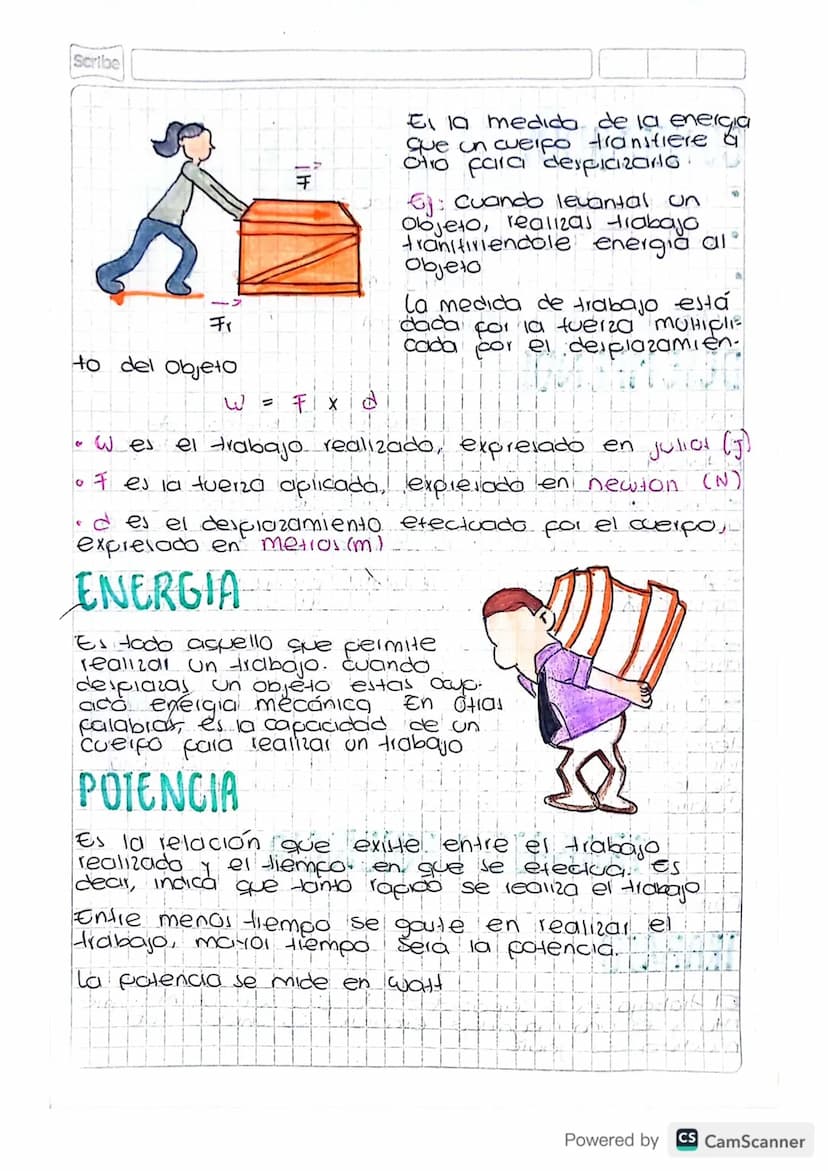 Scribe
Es la medida de la energia
que un cuerpo transfiere a
otro para desplazarlo.
F
Ej: cuando levantas un
objeto, realizas trabajo
transfiriendole energia al
objeto
Fr
La medida de trabajo está
dada por la fuerza multipli-
cada por el desplazamien-
to del objeto
W = F x d
• W es el trabajo realizado, expresado en julios (J)
• F es la fuerza aplicada, expresado en newton (N)
• d es el desplazamiento efectuado por el cuerpo,
expresado en metros (m)
ENERGIA
Es todo aquello que permite
realizar un trabajo. cuando
desplazas un objeto estas
energia mecánica En otras
palabras, es la capacidad de un
cuerpo para realizar un trabajo
POTENCIA
Es la relación que existe entre el trabajo
realizado y el tiempo en que se efectua. Es
decir, indica que tanto rapido se realiza el trabajo
Entre menos tiempo se gaste en realizar el
trabajo, mayor tiempo sera la potencia.
La potencia se mide en watt
Powered by CS CamScanner